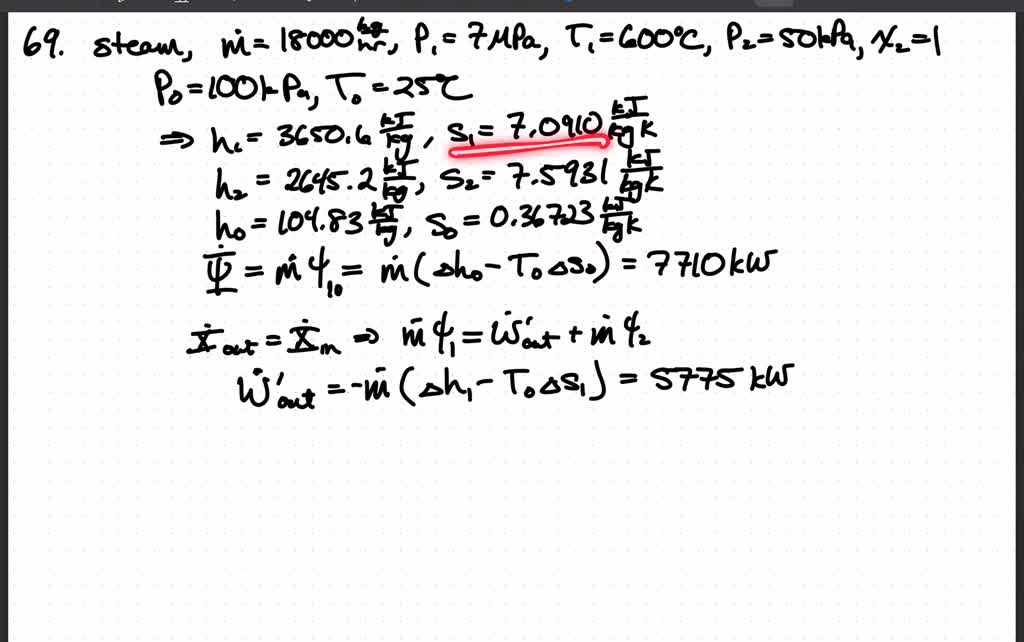 69. steam, ṁ = 18000 kg/hr, P₁ = 7 MPa, T₁ = 600°C, P₂ = 50 kPa, x₂ = 1
P₀ = 100 kPa, T₀ = 25°C
⇒ h₁ = 3650.6 kJ/kg, s₁ = 7.0910 kJ/kg K
h₂ = 2645.2 kJ/kg, s₂ = 7.5931 kJ/kg K
h₀ = 104.83 kJ/kg, s₀ = 0.36723 kJ/kg K
Ψ̇ = ṁ ψ₁₀ = ṁ (Δh₀ - T₀ Δs₀) = 7710 kW
Ẋout = Ẋin ⇒ ṁ ψ₁ = Ẇ'out + ṁ ψ₂
Ẇ'out = -ṁ (Δh₁ - T₀ Δs₁) = 5775 kW